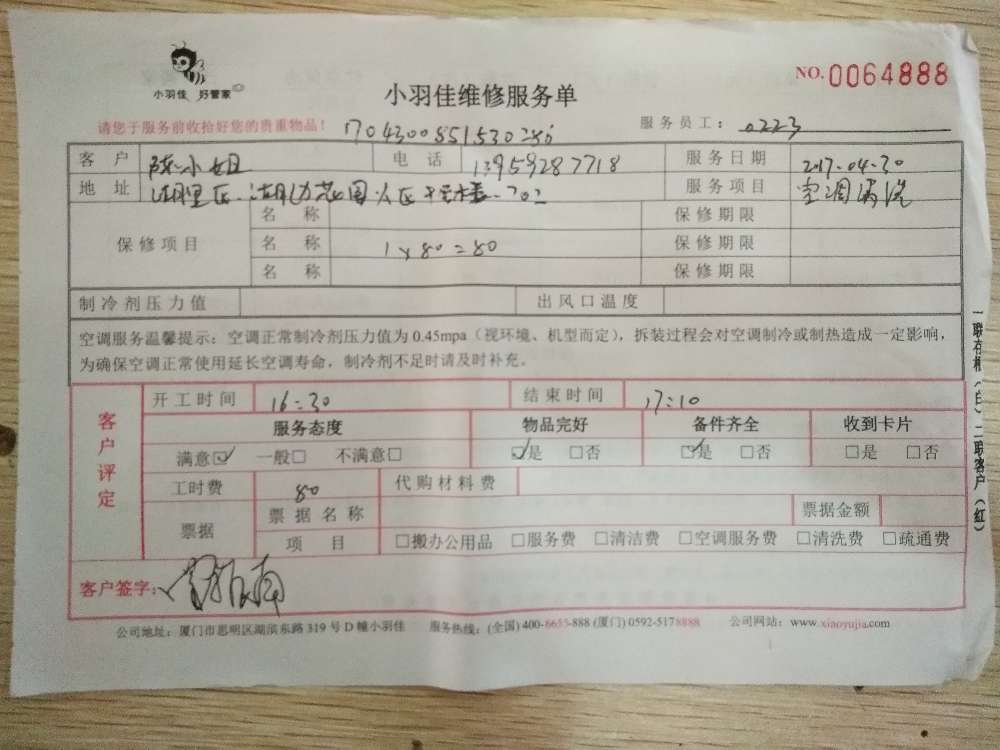 小羽佳 好管家
NO.0064888
小羽佳维修服务单
请您于服务前收拾好您的贵重物品！
服务员工： 0223
客户 陈小姐 电话 13959287718 服务日期 2017-04-30
地址 湖里区 服务项目 空调清洗
保修项目 名称 保修期限
名称 1x80=80 保修期限
名称 保修期限
制冷剂压力值 出风口温度
空调服务温馨提示：空调正常制冷剂压力值为 0.45mpa（视环境、机型而定），拆装过程会对空调制冷或制热造成一定影响，
为确保空调正常使用延长空调寿命，制冷剂不足时请及时补充。
客户评定
开工时间 16:30 结束时间 17:10
服务态度 物品完好 备件齐全 收到卡片
满意☑ 一般□ 不满意□ ☑是 □否 ☑是 □否 □是 □否
工时费 80 代购材料费
票据 票据名称 票据金额
项目 □搬办公用品 □服务费 □清洁费 □空调服务费 □清洗费 □疏通费
客户签字：
公司地址：厦门市思明区湖滨东路 319 号 D 幢小羽佳 服务热线：(全国) 400-6655-888 (厦门) 0592-5178888 公司网站：www.xiaoyujia.com
一联存根（白）二联客户（红）